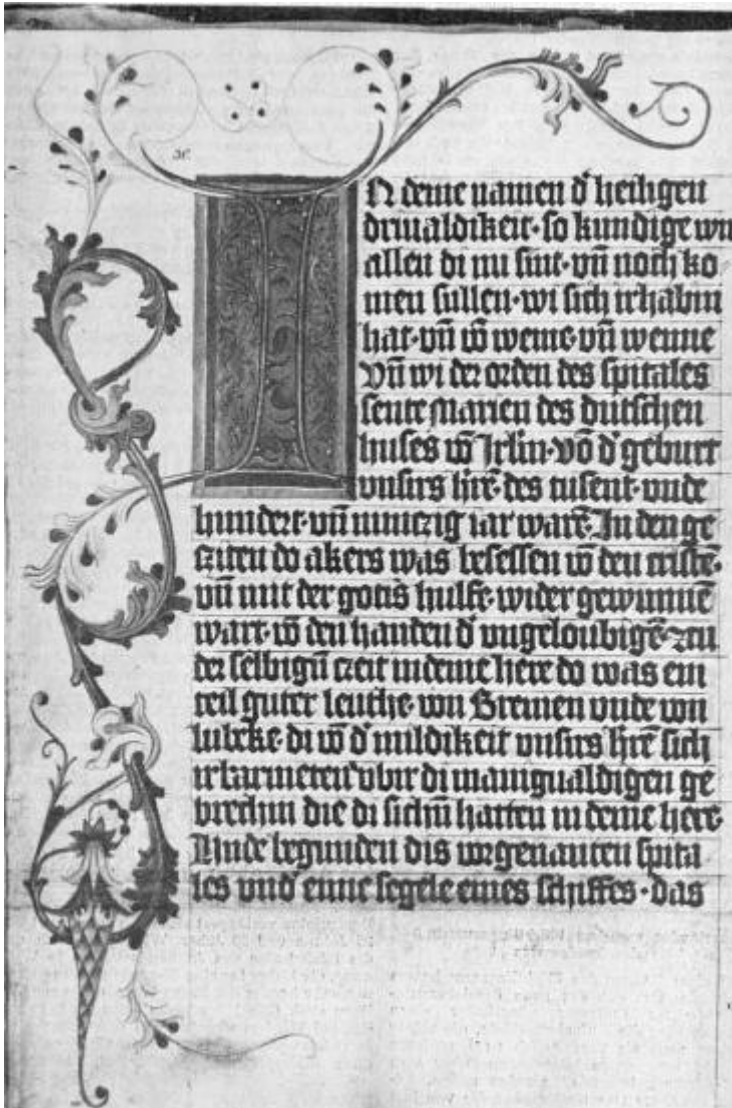 IN deme namen d' heiligen
driualdikeit· so kundige wir
allen di nu sint· vn̄ noch ko
men sullen· wi sich irhabin
hat· vn̄ vō weme· vn̄ wenne
Vn̄ wi der orden des spitales
sente Marien des dutschen
huses vō Jrlm· vō d' geburt
vnsirs h're· des tusent· vnde
hundert· vn̄ nunczig iar warē· In den ge
cziten do akers was besessen vō den cristē·
vn̄ mit der gotis hulfe· wider gewunnē
wart· vō den handen d' vngeloubigē· zcu
der selbigen czeit in deme here do was ein
teil guter leuthe· von Bremen vnde von
lubeke· di vō d' mildikeit vnsirs h'rē sich
irbarmeten vbir di manigualdigen ge
brechin die di sichin hatten in deme here·
Vnde begunden dis vorgenanten spita
les vnd' eime segele eines schiffes · das